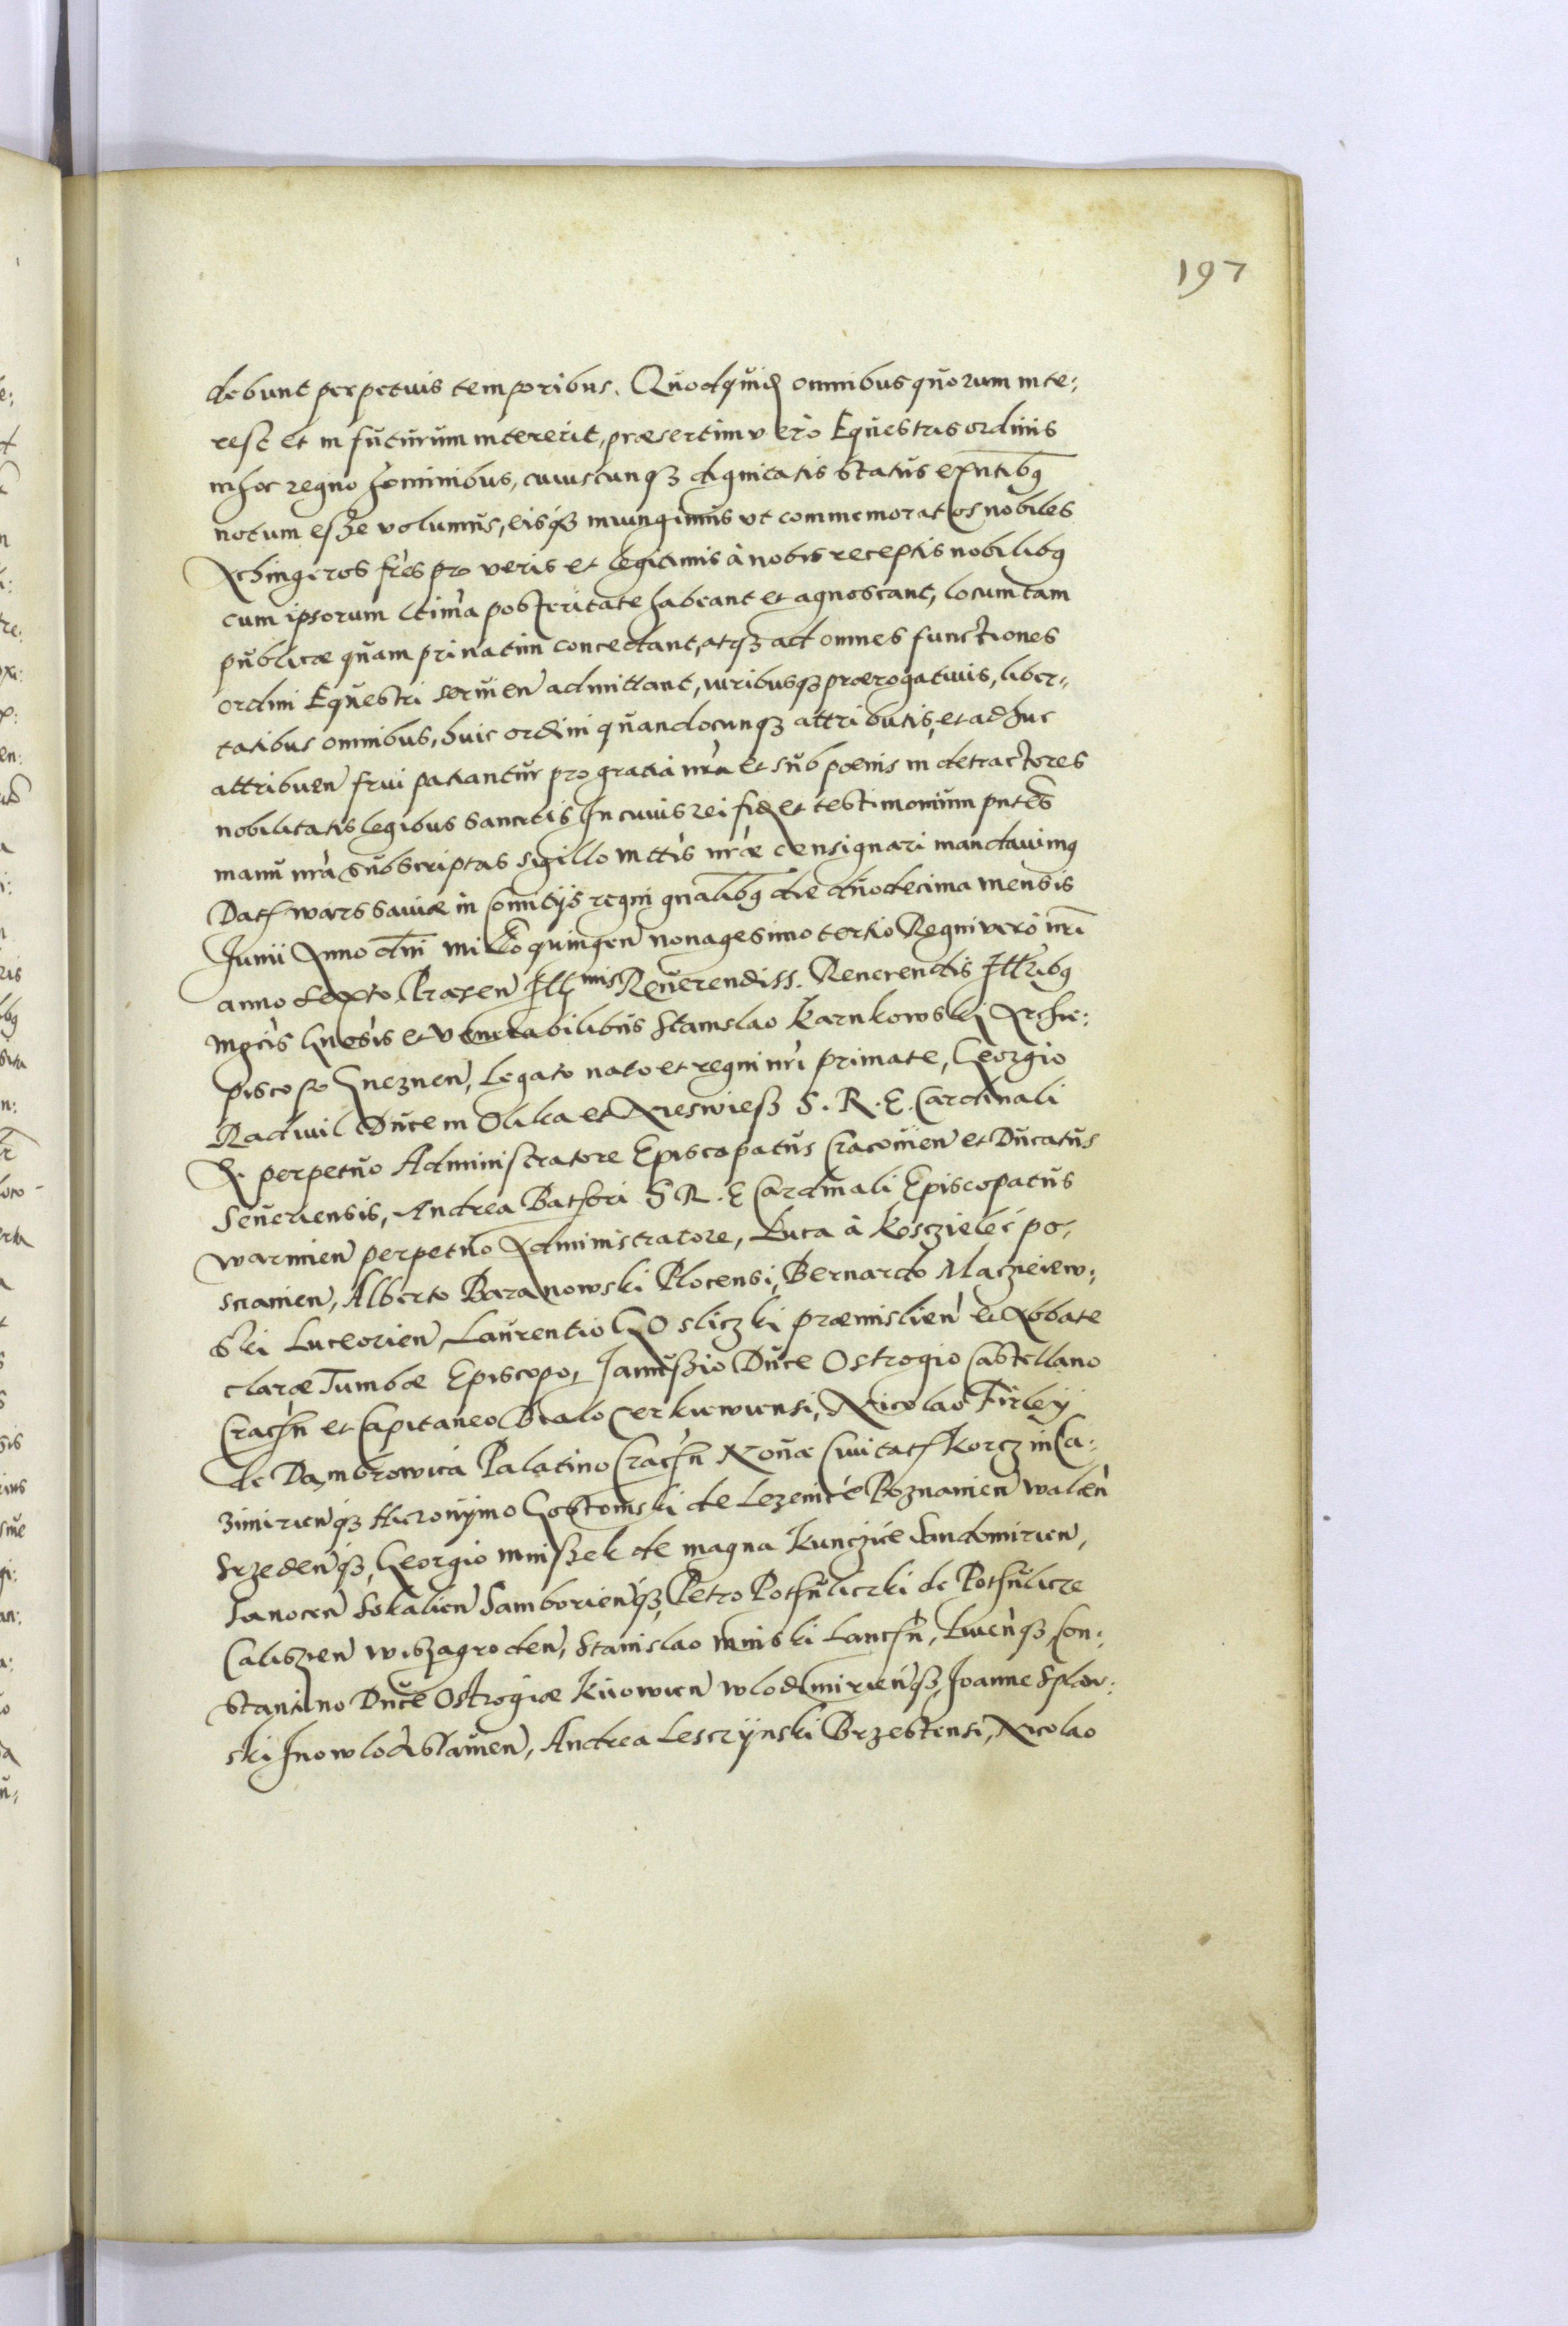 197
debunt perpetuis temporibus. Quodquid omnibus quorum inte:
rest et in futurum intererit, præsertim vero Equestris ordinis
in hoc regno hominibus, cuiuscunqȝ dignitatis status exñtibꝯ
notum esße volumus, eisqȝ iniungimus vt commemoratos nobiles
Achingeros frēs pro veris et legitimis à nobis receptis nobilibꝯ
cum ipsorum ltima posteritate habeant et agnoscant, locum tam
publicæ quam priuatim concedant, atqȝ ad omnes functiones
ordini Equestri seruien admittant, iuribusqȝ prærogatiuis, liber„
tatibus omnibus, huic ordini quandocunqȝ attributis, et adhuc
attribuen frui patiantur pro gratia nrā et sub poenis in detractores
nobilitatis legibus sancitis. In cuius rei fidē et testimonium pñtēs
manu nrā subscriptas sigillo mttis nrāe consignari mandauimꝯ
Dat Warssauiæ in Comitijs regni gnalibꝯ die duodecima mensis
Junii Anno dni millo quingen nonagesimo tertio Regni vero nrī
anno Sexto. Præsen Illmis Reuerendiss. Reuerendis Illribꝯ
mgcis Gnesis et venerabilibus Stanislao Karnkowski Archie:
piscopo Gneznen, Legato nato et regni nrī primate, Georgio
Radiuil Duce in Olika et Nieswieß S. R. E. Cardinali
et perpetuo Administratore Episcopatus Cracouien et Ducatus
Seueriensis, Andrea Bathori S R. E Cardinali Episcopatus
Warmien perpetuo Administratore, Luca à Kosczielec po,
snanien, Alberto Baranowski Plocensi, Bernardo Maczieiew:
ski Luceorien, Laurentio GOsliczki præmislien et Abbate
claræ Tumbæ Episcopo, Janußio Duce Ostrogio Castellano
Crach̃n et Capitaneo Bialo Cerkiewiensi, Nicolao Firleÿ
de Dambrowica Palatino Crach̃n Nouæ Ciuitat Korczin Ca:
zimirienqȝ Hieronÿmo Gostomski de Lezenice Poznanien Walcen
Srzedenqȝ, Georgio mnißek de magna Kunczice Sandomirien,
Leopolien Sokalien Samborienqȝ, Petro Pothuliczki de Pothulicze
Caliszien Wiszagroden, Stanislao minski Lanch̃n, Liuenqȝ, Con:
stantino Duce Ostrogiæ Kiiowien Wlodimirienqȝ, Joanne Splaw:
ski Inowlodislauien, Andrea Lesczÿnski Brzestensi, Nicolao